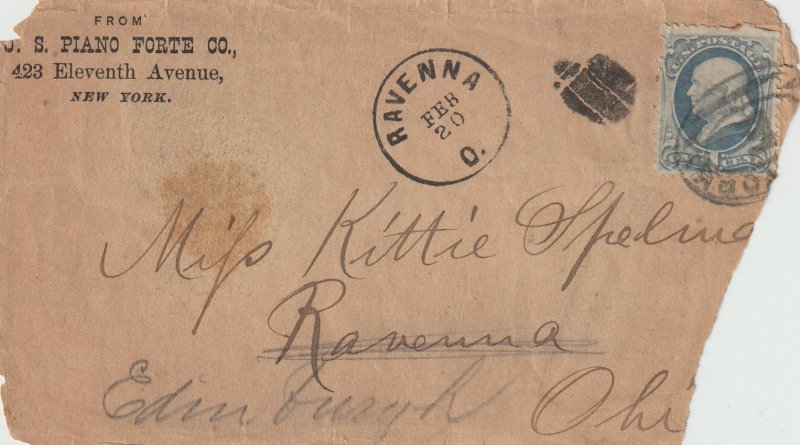 FROM
U. S. PIANO FORTE CO.,
423 Eleventh Avenue,
NEW YORK.
RAVENNA
FEB
20
O.
CENT
Miss Kittie Spelma
Ravenna
Edinburgh Ohi